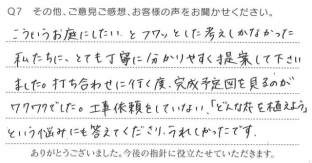 Q7 その他、ご意見ご感想、お客様の声をお聞かせください。
こういうお庭にしたい。とフワッとした考えしかなかった
私たちに、とても丁寧に分かりやすく提案して下さい
ました。打ち合わせに行く度、完成予定図を見るのが
ワクワクでした。工事依頼をしていない、「どんな花を植えよう」
という悩みにも答えてくださり、うれしかったです。
ありがとうございました。今後の指針に役立たせていただきます。